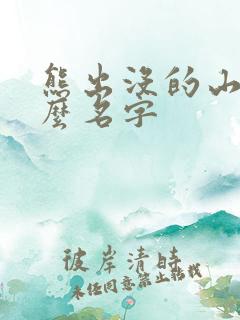 熊出没的山
麼名字
彼岸清時
未经同意禁止转载